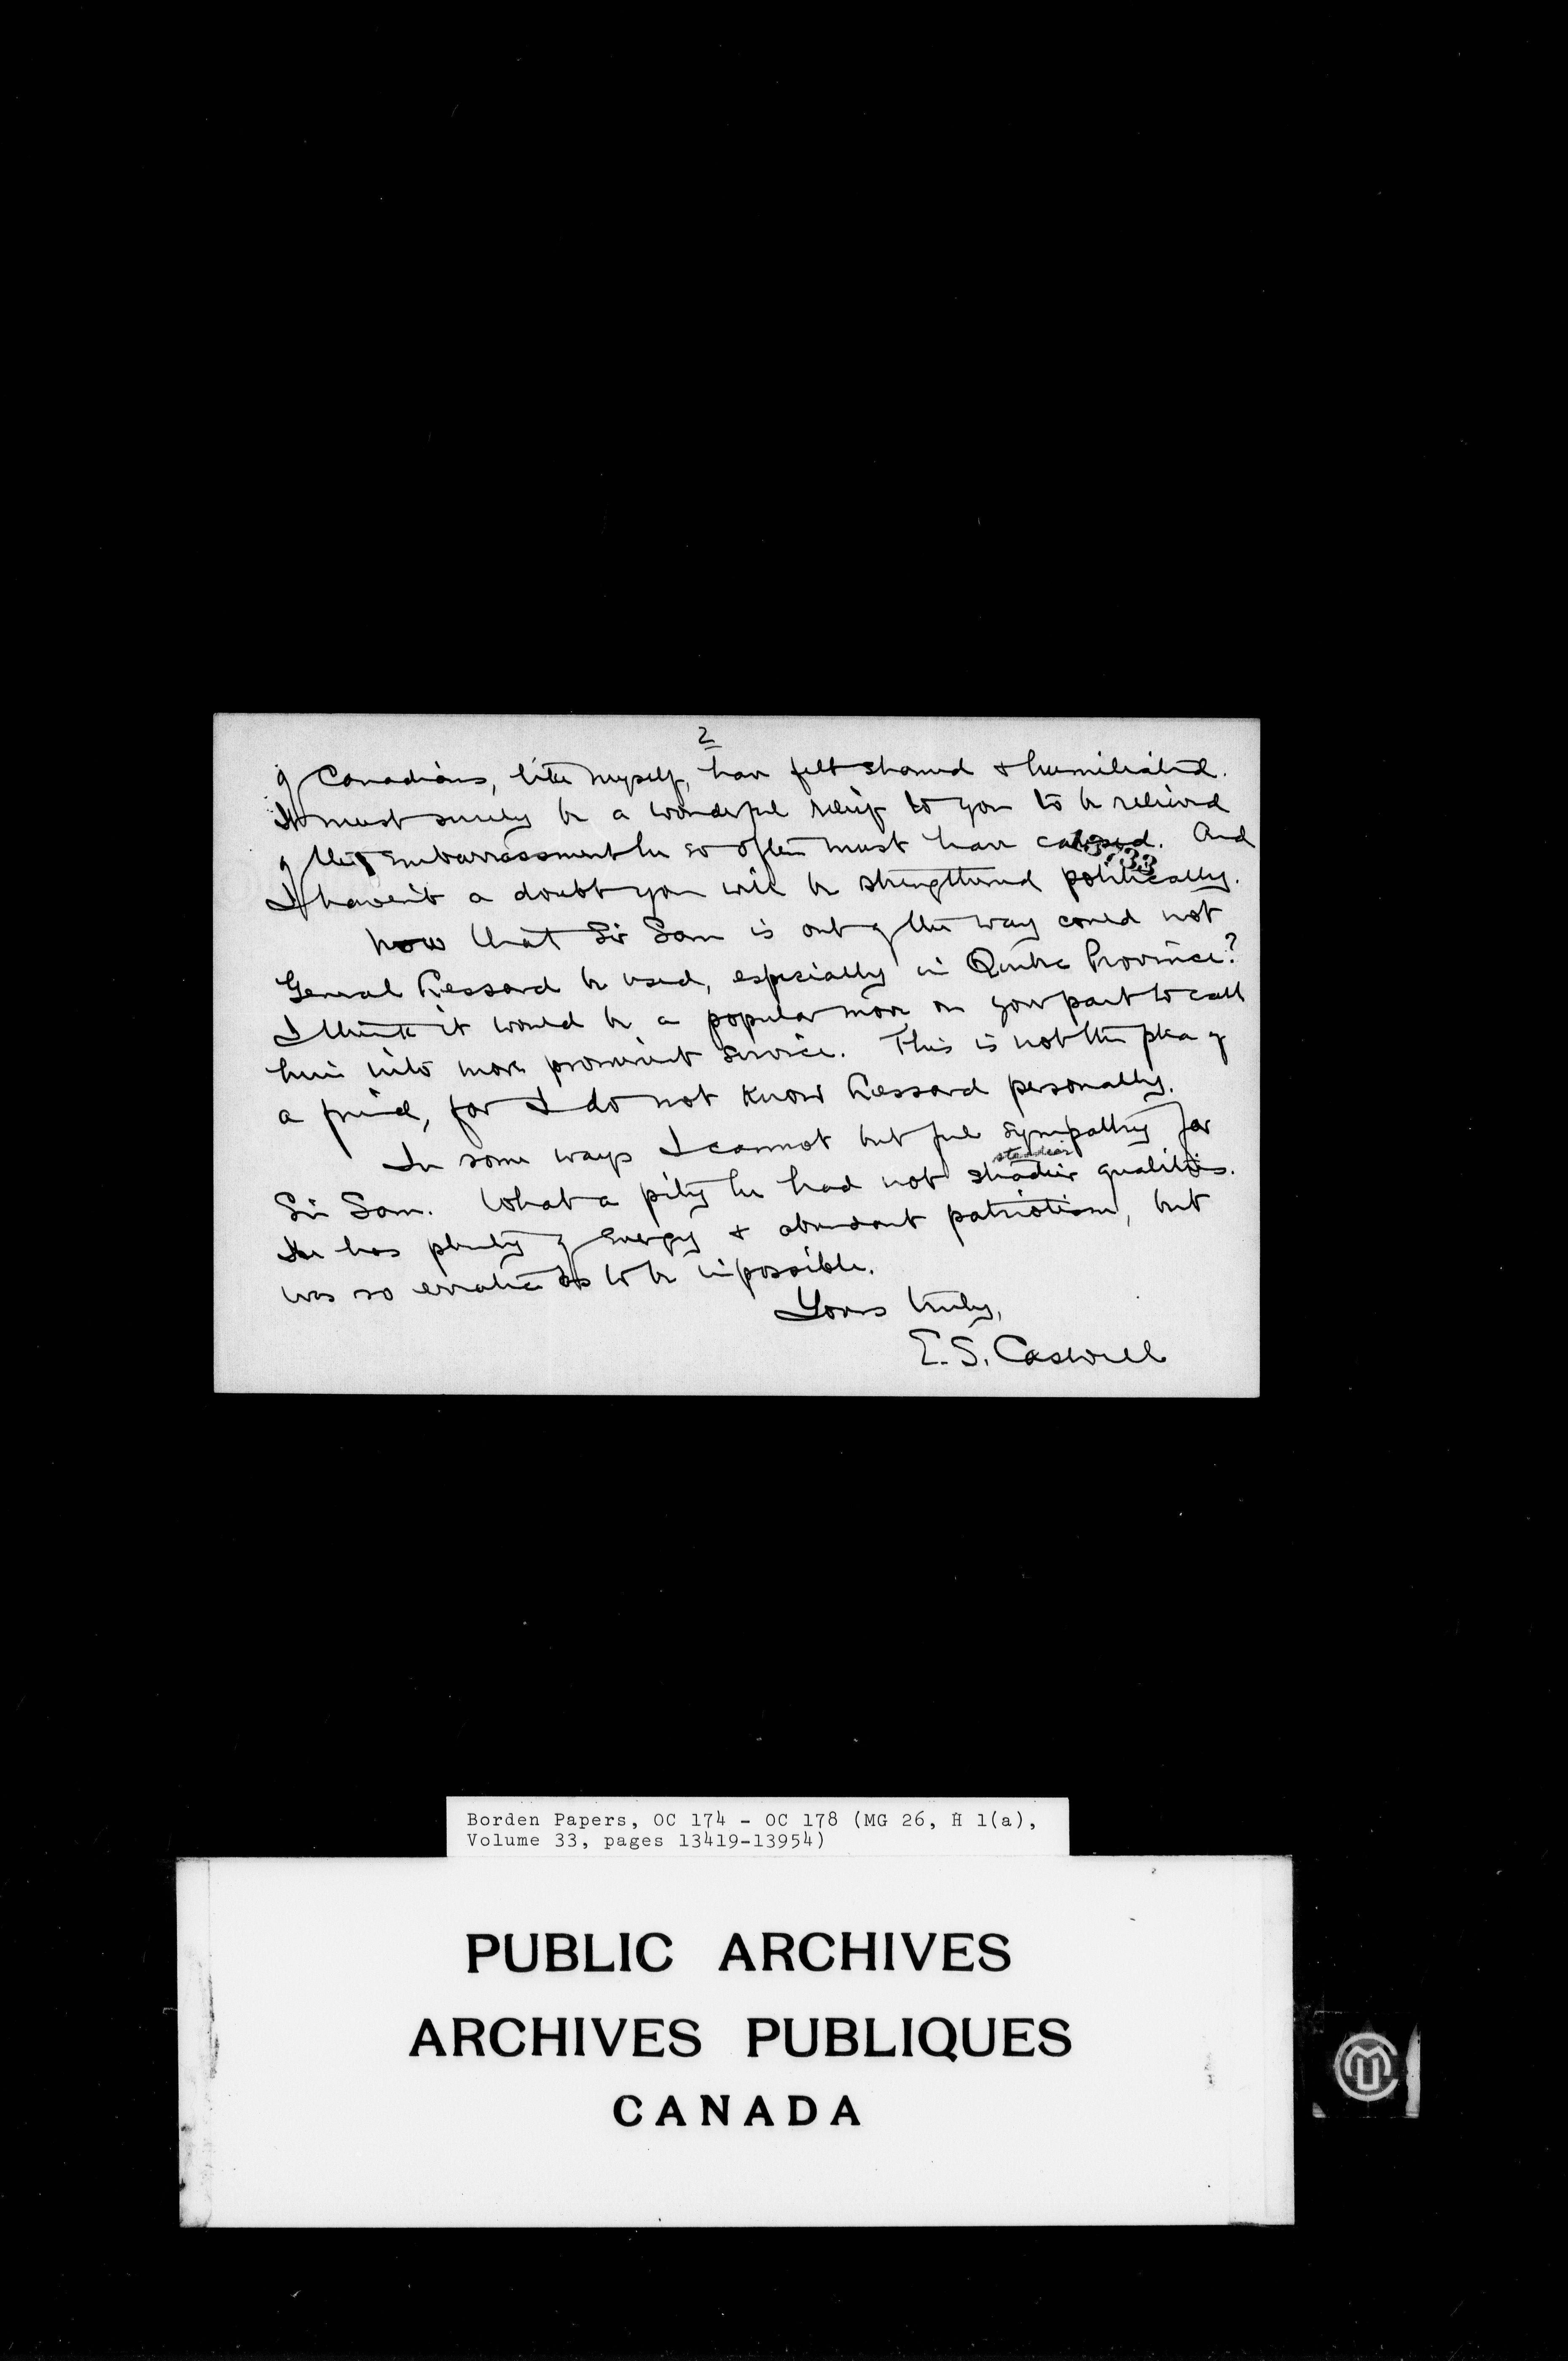 2
of Canadians, like myself, have felt shamed & humiliated.
It must surely be a wonderful relief to you to be relieved
of the embarrassment he so often must have caused. And
I haven't a doubt you will be strengthened politically.
Now that Sir Sam is out of the way could not
General Lessard be used, especially in Quebec Province?
I think it would be a popular move on your part to call
him into more prominent service. This is not the plea of
a friend, for I do not know Lessard personally.
In some ways I cannot but feel sympathy for
steadier
Sir Sam. What a pity he had not steadier qualities.
He has plenty of energy & abundant patriotism, but
was so erratic as to be impossible.
Yours truly,
E. S. Caswell
Borden Papers, OC 174 - OC 178 (MG 26, H 1(a),
Volume 33, pages 13419-13954)
PUBLIC ARCHIVES
ARCHIVES PUBLIQUES
CANADA